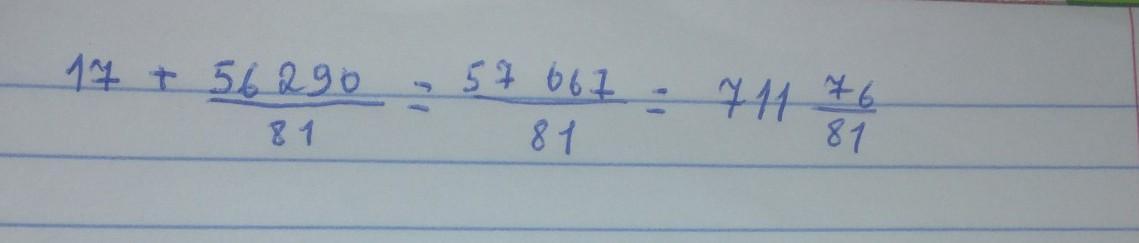 17 + 56 290/81 = 57 667/81 = 711 76/81